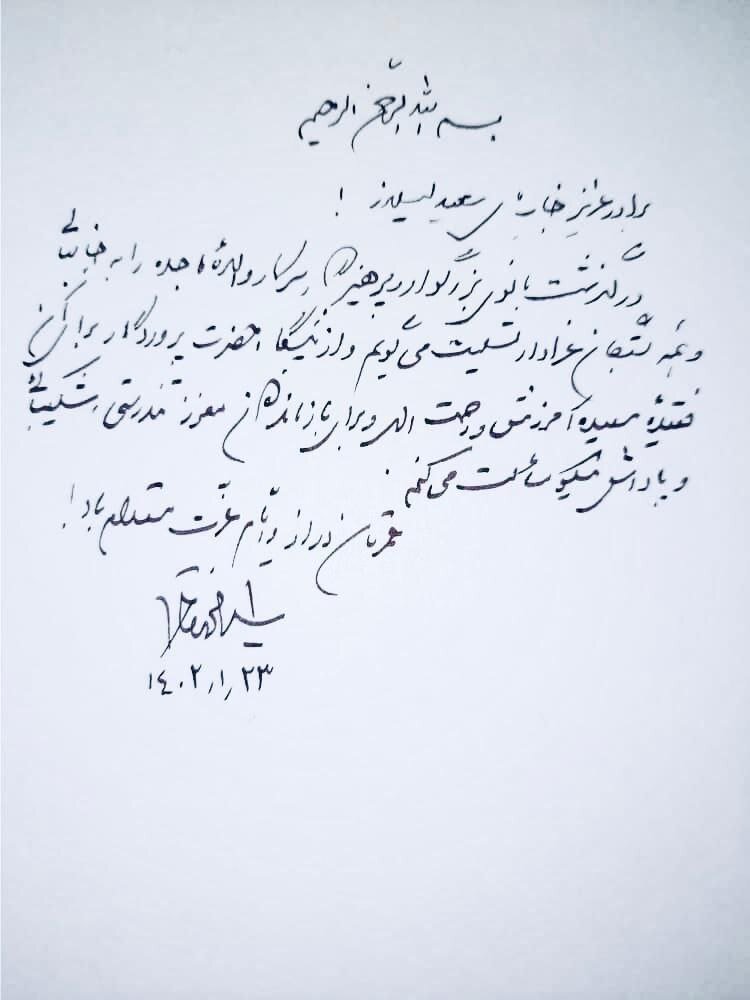 بسم الله الرحمن الرحیم
برادر عزیز جناب آقای سعید لیلاز !
درگذشت بانوی بزرگوار و پرهیزگار سرکار والدهٔ ماجده را به جنابعالی
و همه بستگان عزادار تسلیت می‌گویم و از پیشگاه حضرت پروردگار برای آن
فقیدهٔ سعیده آمرزش و رحمت الهی و برای بازماندگان معزز تندرستی، شکیبائی
و پاداش نیکو مسألت می‌کنم.
عمرتان دراز و ایام عزت مستدام باد!
سید محمد خاتمی
۱۴۰۲٫۱٫۲۳